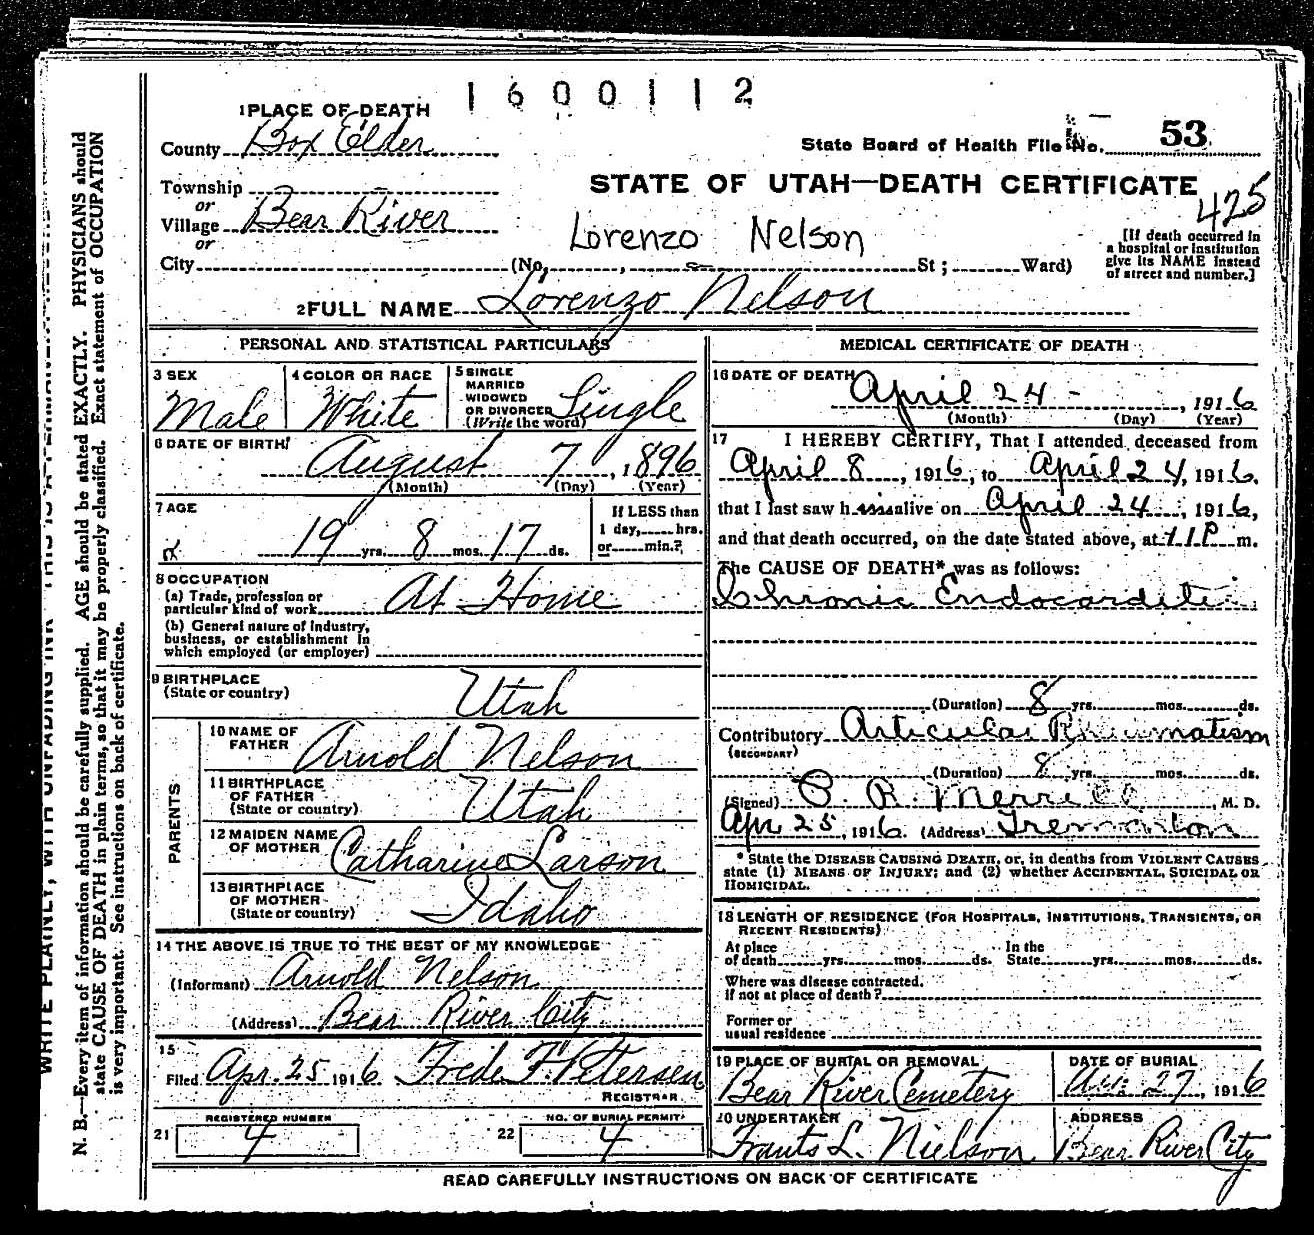 1600112
1 PLACE OF DEATH
County Box Elder
State Board of Health File No. 53
Township
or
STATE OF UTAH—DEATH CERTIFICATE
425
Village Bear River
or
Lorenzo Nelson
[If death occurred in
a hospital or institution
give its NAME instead
of street and number.]
City (No., St; Ward)
2 FULL NAME Lorenzo Nelson
PERSONAL AND STATISTICAL PARTICULARS
3 SEX
Male
4 COLOR OR RACE
White
5 SINGLE
MARRIED
WIDOWED
OR DIVORCED
(Write the word)
Single
6 DATE OF BIRTH
August 7, 1896
(Month) (Day) (Year)
7 AGE
19 yrs. 8 mos. 17 ds.
If LESS than
1 day, hrs.
or min.?
8 OCCUPATION
(a) Trade, profession or
particular kind of work At Home
(b) General nature of Industry,
business, or establishment in
which employed (or employer)
9 BIRTHPLACE
(State or country) Utah
PARENTS
10 NAME OF
FATHER Arnold Nelson
11 BIRTHPLACE
OF FATHER
(State or country) Utah
12 MAIDEN NAME
OF MOTHER Catharine Larson
13 BIRTHPLACE
OF MOTHER
(State or country) Idaho
14 THE ABOVE IS TRUE TO THE BEST OF MY KNOWLEDGE
(Informant) Arnold Nelson
(Address) Bear River City
15
Filed Apr. 25 1916 Frede F. Petersen
REGISTRAR
REGISTERED NUMBER
21 4
NO. OF BURIAL PERMIT
22 4
MEDICAL CERTIFICATE OF DEATH
16 DATE OF DEATH
April 24 - , 1916
(Month) (Day) (Year)
17 I HEREBY CERTIFY, That I attended deceased from
April 8, 1916, to April 24, 1916,
that I last saw him alive on April 24, 1916,
and that death occurred, on the date stated above, at 11 P m.
The CAUSE OF DEATH* was as follows:
Chronic Endocarditi
(Duration) 8 yrs. mos. ds.
Contributory Articular Rheumatism
(SECONDARY)
(Duration) 8 yrs. mos. ds.
(Signed) P. R. Merrill, M. D.
Apr 25, 1916. (Address) Tremonton
* State the DISEASE CAUSING DEATH, or, in deaths from VIOLENT CAUSES
state (1) MEANS OF INJURY; and (2) whether ACCIDENTAL, SUICIDAL OR
HOMICIDAL.
18 LENGTH OF RESIDENCE (FOR HOSPITALS, INSTITUTIONS, TRANSIENTS, OR
RECENT RESIDENTS)
At place
of death yrs. mos. ds.
In the
State yrs. mos. ds.
Where was disease contracted.
If not at place of death?
Former or
usual residence
19 PLACE OF BURIAL OR REMOVAL
Bear River Cemetery
DATE OF BURIAL
27, 1916
20 UNDERTAKER
Frants L. Nielson
ADDRESS
Bear River City
READ CAREFULLY INSTRUCTIONS ON BACK OF CERTIFICATE
WRITE PLAINLY, WITH UNFADING INK
N. B.—Every item of information should be carefully supplied. AGE should be stated EXACTLY. PHYSICIANS should
state CAUSE OF DEATH in plain terms, so that it may be properly classified. Exact statement of OCCUPATION
is very important. See instructions on back of certificate.